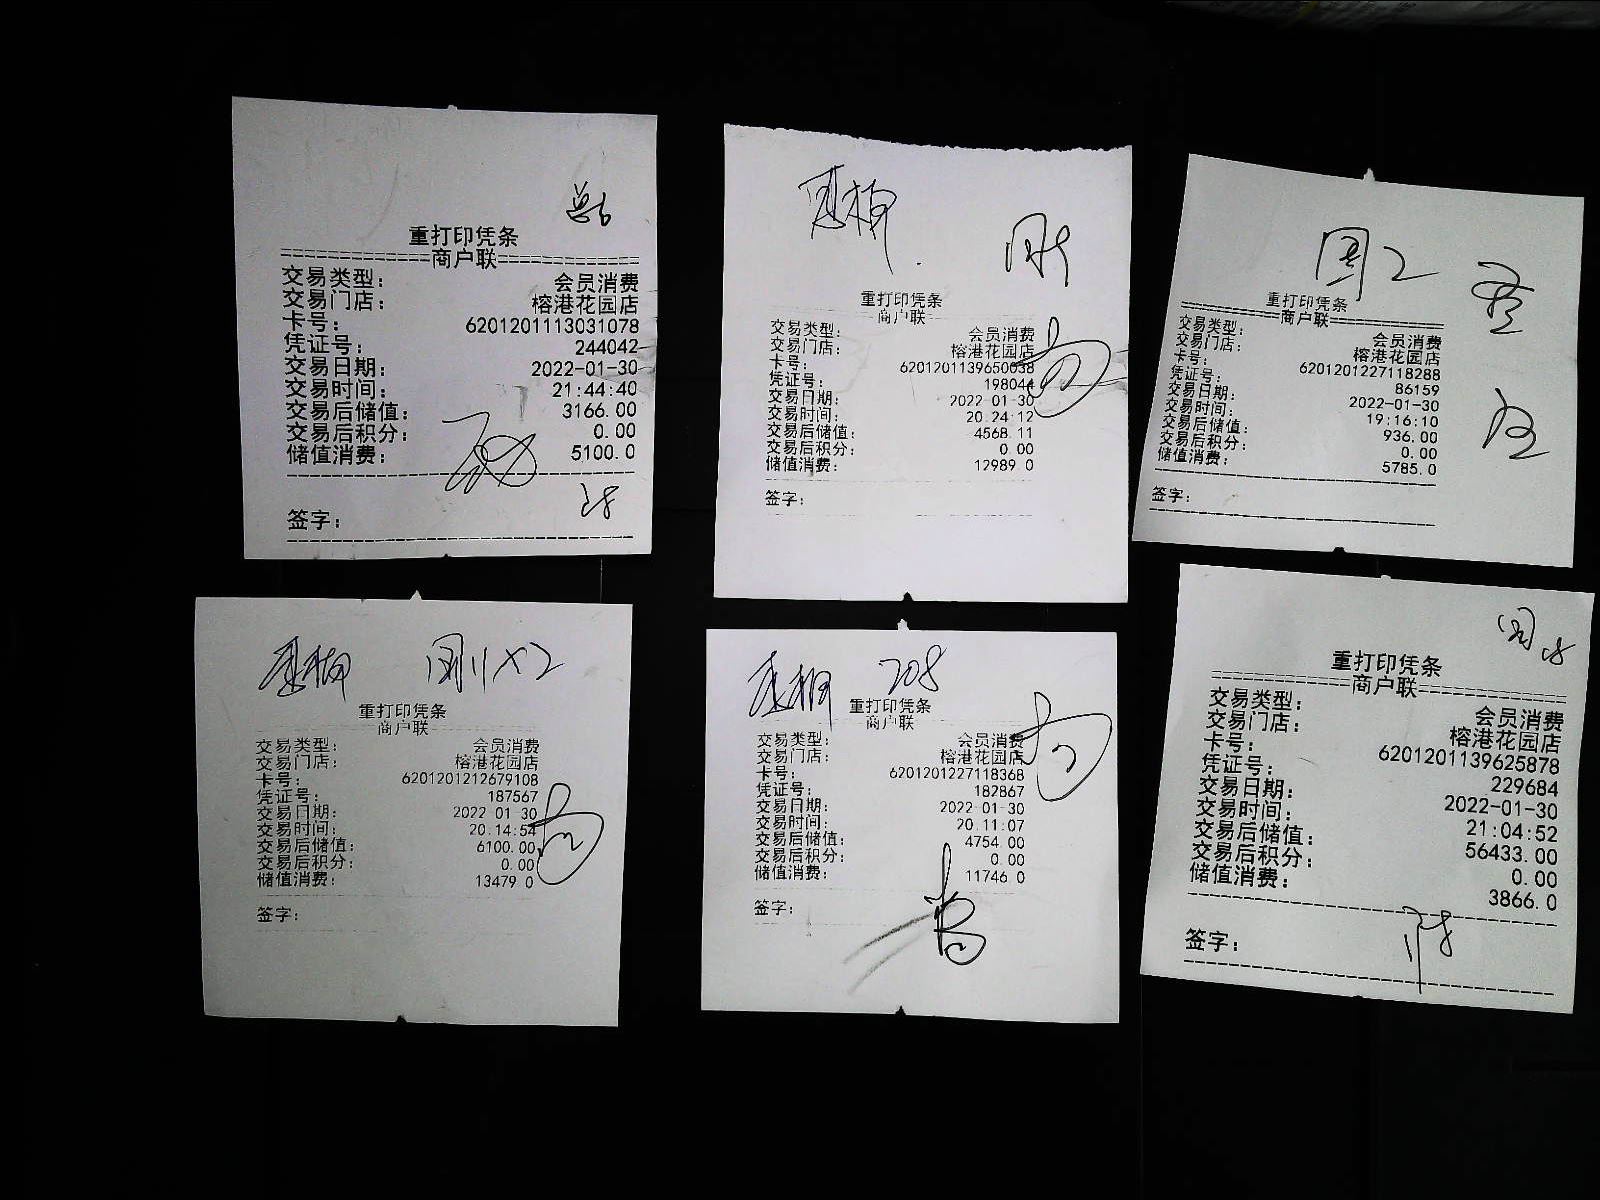 重打印凭条
商户联
交易类型: 会员消费
交易门店: 榕港花园店
卡号: 6201201113031078
凭证号: 244042
交易日期: 2022-01-30
交易时间: 21:44:40
交易后储值: 3166.00
交易后积分: 0.00
储值消费: 5100.0
签字:
重打印凭条
商户联
交易类型: 会员消费
交易门店: 榕港花园店
卡号: 6201201139650038
凭证号: 198044
交易日期: 2022-01-30
交易时间: 20:24:12
交易后储值: 4568.11
交易后积分: 0.00
储值消费: 12989.0
签字:
重打印凭条
商户联
交易类型: 会员消费
交易门店: 榕港花园店
卡号: 6201201227118288
凭证号: 86159
交易日期: 2022-01-30
交易时间: 19:16:10
交易后储值: 936.00
交易后积分: 0.00
储值消费: 5785.0
签字:
重打印凭条
商户联
交易类型: 会员消费
交易门店: 榕港花园店
卡号: 6201201212679108
凭证号: 187567
交易日期: 2022-01-30
交易时间: 20:14:54
交易后储值: 6100.00
交易后积分: 0.00
储值消费: 13479.0
签字:
208
重打印凭条
商户联
交易类型: 会员消费
交易门店: 榕港花园店
卡号: 6201201227118368
凭证号: 182867
交易日期: 2022-01-30
交易时间: 20:11:07
交易后储值: 4754.00
交易后积分: 0.00
储值消费: 11746.0
签字:
重打印凭条
商户联
交易类型: 会员消费
交易门店: 榕港花园店
卡号: 6201201139625878
凭证号: 229684
交易日期: 2022-01-30
交易时间: 21:04:52
交易后储值: 56433.00
交易后积分: 0.00
储值消费: 3866.0
签字: